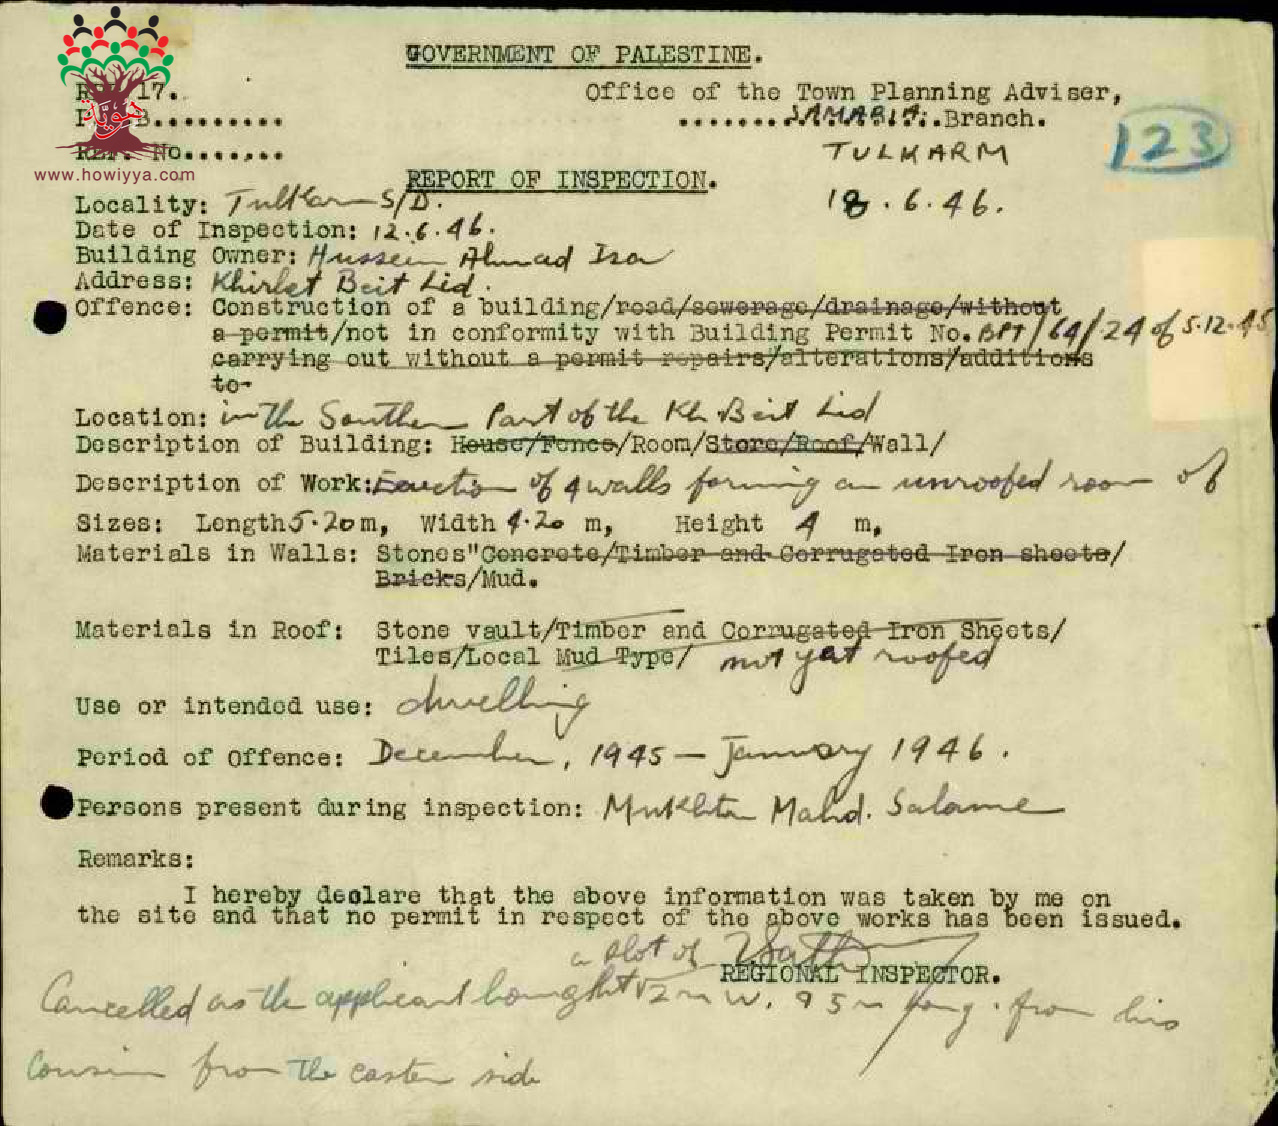 GOVERNMENT OF PALESTINE.
17.
Office of the Town Planning Adviser,
B.........
SAMARIA Branch.
REF. No.......
TULKARM
123
هوية
www.howiyya.com
REPORT OF INSPECTION.
18.6.46.
Locality: Tulkarm S/D.
Date of Inspection: 12.6.46.
Building Owner: Hussein Ahmad Isa
Address: Khirbet Beit Lid.
Offence: Construction of a building/road/sewerage/drainage/without
a permit/not in conformity with Building Permit No. BPT/64/24 of 5.12.45
carrying out without a permit repairs/alterations/additions
to-
Location: in the Southern Part of the Kh. Beit Lid
Description of Building: House/Fence/Room/Store/Roof/Wall/
Description of Work: Erection of 4 walls forming an unroofed room of
Sizes: Length 5.20 m, Width 4.20 m, Height 4 m,
Materials in Walls: Stones"Concrete/Timber and Corrugated Iron sheets/
Bricks/Mud.
Materials in Roof: Stone vault/Timber and Corrugated Iron Sheets/
Tiles/Local Mud Type/ not yet roofed
Use or intended use: dwelling
Period of Offence: December, 1945 - January 1946.
Persons present during inspection: Mukhtar Mahd. Salame
Remarks:
I hereby declare that the above information was taken by me on
the site and that no permit in respect of the above works has been issued.
a plot of
REGIONAL INSPECTOR.
Cancelled as the applicant bought 2 m W. 9 5 m long. from his
cousin from the eastern side